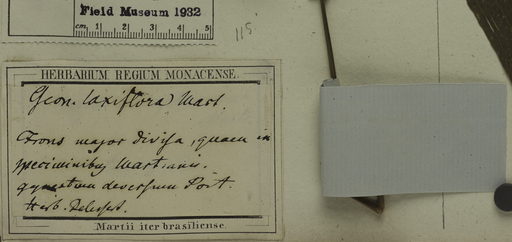 Field Museum 1932
cm. 1 2 3 4 5
115
HERBARIUM REGIUM MONACENSE.
Geon. laxiflora Mart.
Frons major divisa, quam in
speciminibus Martianis.
Herb. Delessert.
Martii iter brasiliense.